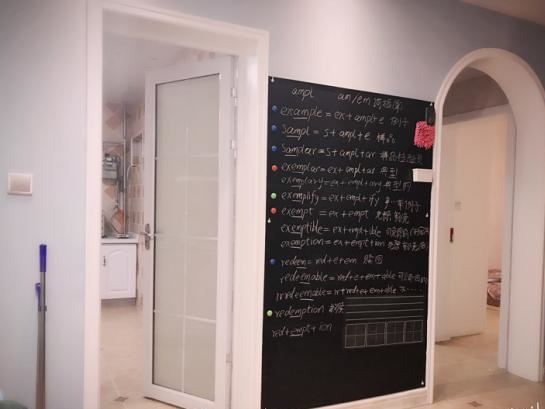 ampl an/em
example = ex + ampl + e 例子
sampl = s + ampl + e 样品
samplar = s + ampl + ar 样品检验员
exemplar = ex + empl + ar 典型
exemplary = ex + empl + ary 典型的
exemplify = ex + empl + ify 举例子
exempt = ex + empt 免除
exemptible = ex + empt + ible
exemption = ex + empt + ion 免除
redeem = red + e + em 赎回
redeemable = red + e + em + able
irredeemable = ir + red + e + em + able 不……
redemption
red + empt + ion